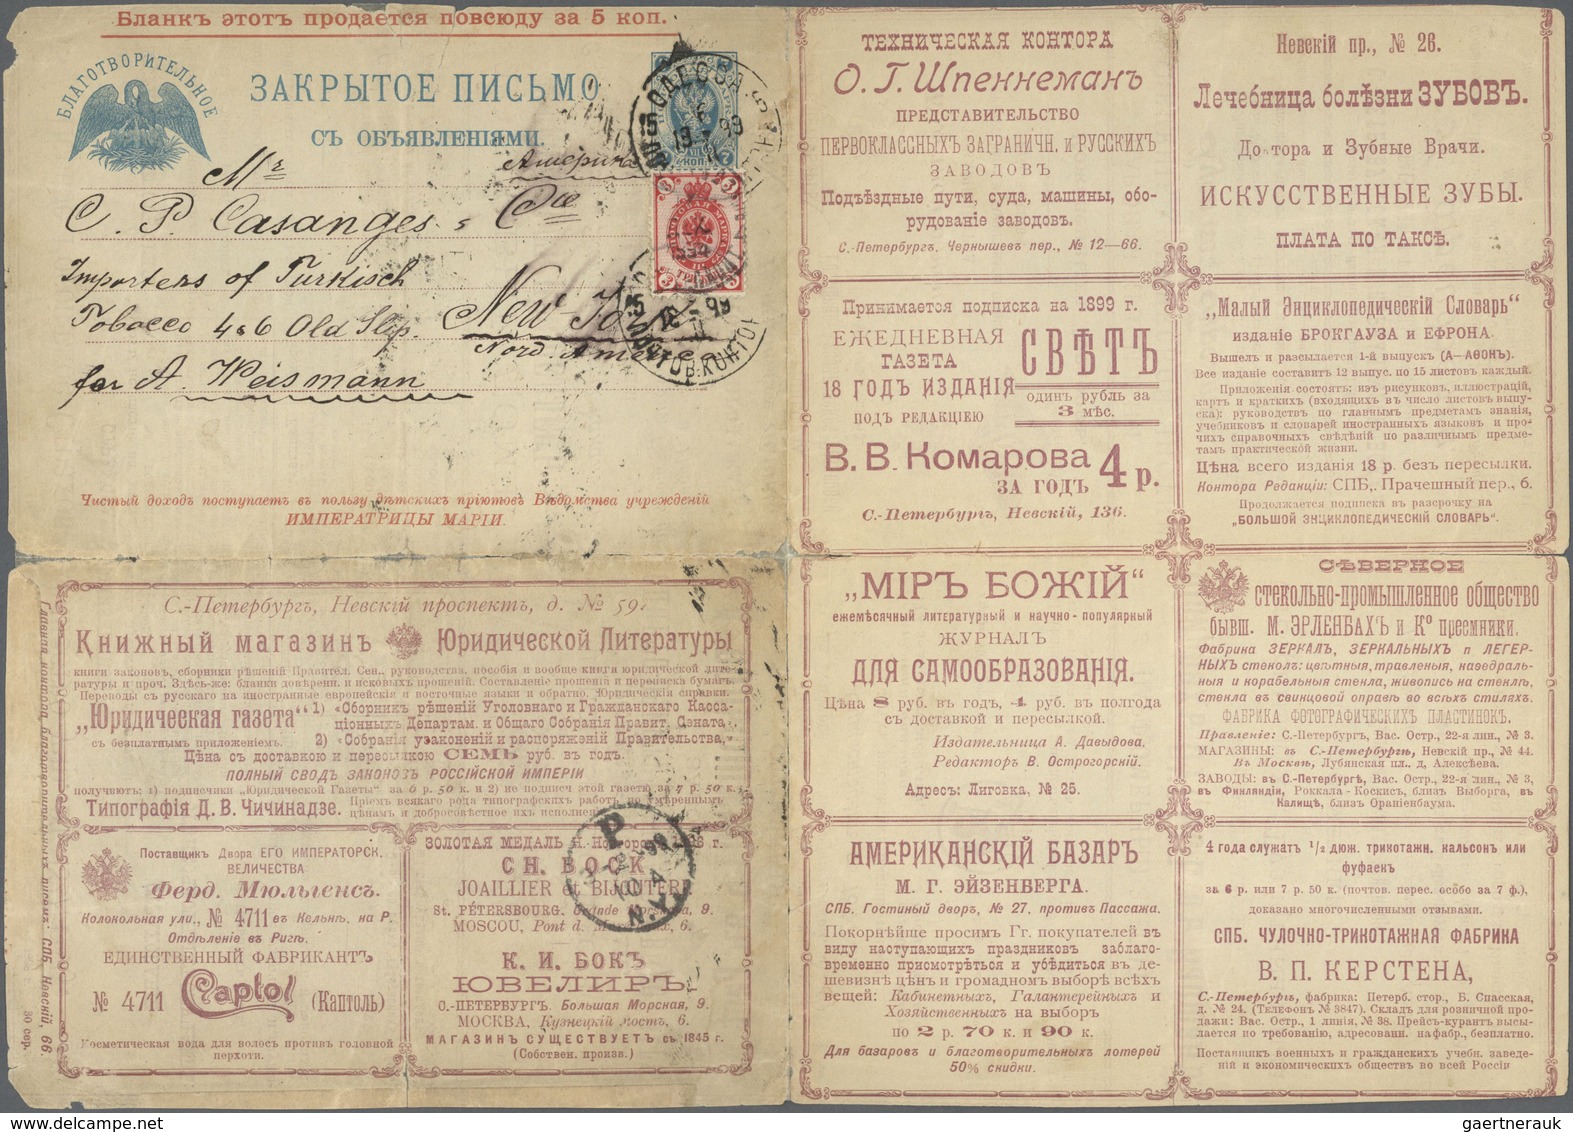 Бланкъ этотъ продается повсюду за 5 коп.
БЛАГОТВОРИТЕЛЬНОЕ
ЗАКРЫТОЕ ПИСЬМО
СЪ ОБЪЯВЛЕНІЯМИ.
Америка
Mr
C. P. Casanges & Cie
Importers of Turkisch
Tobacco 4 & 6 Old Slip.
New-Yo
Nord America
for A. Weismann
ОДЕССА
ТРИ КОП.
Чистый доходъ поступаетъ въ пользу дѣтскихъ пріютовъ Вѣдомства учрежденій
ИМПЕРАТРИЦЫ МАРІИ.
С.-Петербургъ, Невскій проспектъ, д. № 59.
Книжный магазинъ Юридической Литературы
книги законовъ, сборники рѣшеній Правител. Сен., руководства, пособія и вообще книги юридической лите-
ратуры и проч. Здѣсь-же: бланки довѣренн. и исковыхъ прошеній. Составленіе прошеній и переписка бумагъ.
Переводы съ русскаго на иностранные европейскія и восточные языки и обратно. Юридическія справки.
„Юридическая газета“
съ безплатнымъ приложеніемъ.
1) «Сборникъ рѣшеній Уголовнаго и Гражданскаго Касса-
ціонныхъ Департам. и Общаго Собранія Правит. Сената.
2) «Собранія узаконеній и распоряженій Правительства,
Цѣна съ доставкою и пересылкою СЕМЬ руб. въ годъ.
ПОЛНЫЙ СВОДЪ ЗАКОНОВЪ РОССІЙСКОЙ ИМПЕРІИ
получаютъ: 1) подписчики "Юридической Газеты" за 6 р. 50 к. и 2) не подписч этой газеты за 7 р. 50 к.
Типографія Д. В. Чичинадзе.
Пріемъ всякаго рода типографскихъ работъ по умѣреннымъ
цѣнамъ и добросовѣстное ихъ исполненіе.
Поставщикъ Двора ЕГО ИМПЕРАТОРСК.
ВЕЛИЧЕСТВА
Ферд. Мюльгенсъ.
Колокольная ули., № 4711 въ Кельнѣ, на Р.
Отдѣленіе въ Ригѣ.
ЕДИНСТВЕННЫЙ ФАБРИКАНТЪ
№ 4711 Captol (Каптоль)
Косметическая вода для волосъ противъ головной
перхоти.
ЗОЛОТАЯ МЕДАЛЬ Н.
CH. BOCK
JOAILLIER et BIJOUTIER
St. PÉTERSBOURG. Grande Morskaïa, 9.
MOSCOU, Pont d. Maréchaux, 6.
К. И. БОКЪ
ЮВЕЛИРЪ
С.-ПЕТЕРБУРГЪ. Большая Морская, 9.
МОСКВА, Кузнецкій мостъ, 6.
МАГАЗИНЪ СУЩЕСТВУЕТЪ съ 1845 г.
(Собствен. произв.)
P
N.Y.
30 сер.
ТЕХНИЧЕСКАЯ КОНТОРА
О. Г. Шпеннеманъ
ПРЕДСТАВИТЕЛЬСТВО
ПЕРВОКЛАССНЫХЪ ЗАГРАНИЧН. и РУССКИХЪ
ЗАВОДОВЪ
Подъѣздные пути, суда, машины, обо-
рудованіе заводовъ.
С.-Петербургъ. Чернышевъ пер., № 12—66.
Невскій пр., № 26.
Лечебница болѣзни ЗУБОВЪ.
Доктора и Зубные Врачи.
ИСКУССТВЕННЫЕ ЗУБЫ.
ПЛАТА ПО ТАКСѢ.
Принимается подписка на 1899 г.
ЕЖЕДНЕВНАЯ
ГАЗЕТА
СВѢТЪ
18 ГОДЪ ИЗДАНІЯ
ПОДЪ РЕДАКЦІЕЮ
одинъ рубль за
3 мѣс.
В. В. Комарова
ЗА ГОДЪ 4 р.
С.-Петербургъ, Невскій, 136.
„Малый Энциклопедическій Словарь“
изданіе БРОКГАУЗА и ЕФРОНА.
Вышелъ и разсылается 1-й выпускъ (А—АѲОНЪ).
Все изданіе составитъ 12 выпус. по 15 листовъ каждый.
Приложенія состоятъ: изъ рисунковъ, иллюстрацій,
картъ и краткихъ (входящихъ въ число листовъ выпу-
ска): руководствъ по главнымъ предметамъ знанія,
учебниковъ и словарей иностранныхъ языковъ и про-
чихъ справочныхъ свѣдѣній по различнымъ предме-
тамъ практической жизни.
Цѣна всего изданія 18 р. безъ пересылки.
Контора Редакціи: СПБ., Прачешный пер., 6.
Продолжается подписка въ разсрочку на
„БОЛЬШОЙ ЭНЦИКЛОПЕДИЧЕСКІЙ СЛОВАРЬ“.
„МІРЪ БОЖІЙ“
ежемѣсячный литературный и научно - популярный
ЖУРНАЛЪ
ДЛЯ САМООБРАЗОВАНІЯ.
Цѣна 8 руб. въ годъ, 4 руб. въ полгода
съ доставкой и пересылкой.
Издательница А. Давыдова.
Редакторъ В. Острогорскій.
Адресъ: Лиговка, № 25.
СѢВЕРНОЕ
СТЕКОЛЬНО-ПРОМЫШЛЕННОЕ ОБЩЕСТВО
БЫВШ. М. ЭРЛЕНБАХЪ и Ко преемники.
Фабрика ЗЕРКАЛЪ, ЗЕРКАЛЬНЫХЪ и ЛЕГЕР-
НЫХЪ стеколъ: цвѣтныя, травленыя, каѳедраль-
ныя и корабельныя стекла, живопись на стеклѣ,
стекла въ свинцовой оправѣ во всѣхъ стиляхъ.
ФАБРИКА ФОТОГРАФИЧЕСКИХЪ ПЛАСТИНОКЪ.
Правленіе: С.-Петербургъ, Вас. Остр., 22-я лин., № 3.
МАГАЗИНЫ: въ С.-Петербургѣ, Невскій пр., № 44.
Въ Москвѣ, Лубянская пл., д. Алексѣева.
ЗАВОДЫ: въ С.-Петербургѣ, Вас. Остр., 22-я лин., № 3,
въ Финляндіи, Роккала-Коскисъ, близъ Выборга, въ
Калищѣ, близъ Ораніенбаума.
АМЕРИКАНСКІЙ БАЗАРЪ
М. Г. ЭЙЗЕНБЕРГА.
СПБ. Гостиный дворъ, № 27, противъ Пассажа.
Покорнѣйше просимъ Гг. покупателей въ
виду наступающихъ праздниковъ заблаго-
временно присмотрѣться и убѣдиться въ де-
шевизнѣ цѣнъ и громадномъ выборѣ всѣхъ
вещей: Кабинетныхъ, Галантерейныхъ и
Хозяйственныхъ на выборъ
по 2 р. 70 к. и 90 к.
Для базаровъ и благотворительныхъ лотерей
50% скидки.
4 года служатъ 1/2 дюж. трикотажн. кальсонъ или
фуфаекъ
за 6 р. или 7 р. 50 к. (почтов. перес. особо за 7 ф.),
доказано многочисленными отзывами.
СПБ. ЧУЛОЧНО-ТРИКОТАЖНАЯ ФАБРИКА
В. П. КЕРСТЕНА,
С.-Петербургъ, фабрика: Петерб. стор., Б. Спасская,
д. № 24. (Телефонъ № 3847). Складъ для розничной про-
дажи: Вас. Остр., 1 линія, № 38. Прейсъ-курантъ высы-
лается по требованію, адресованн. на фабр., безплатно.
Поставщикъ военныхъ и гражданскихъ учебн. заведе-
ній и экономическихъ обществъ во всей Россіи
gaertnerauk